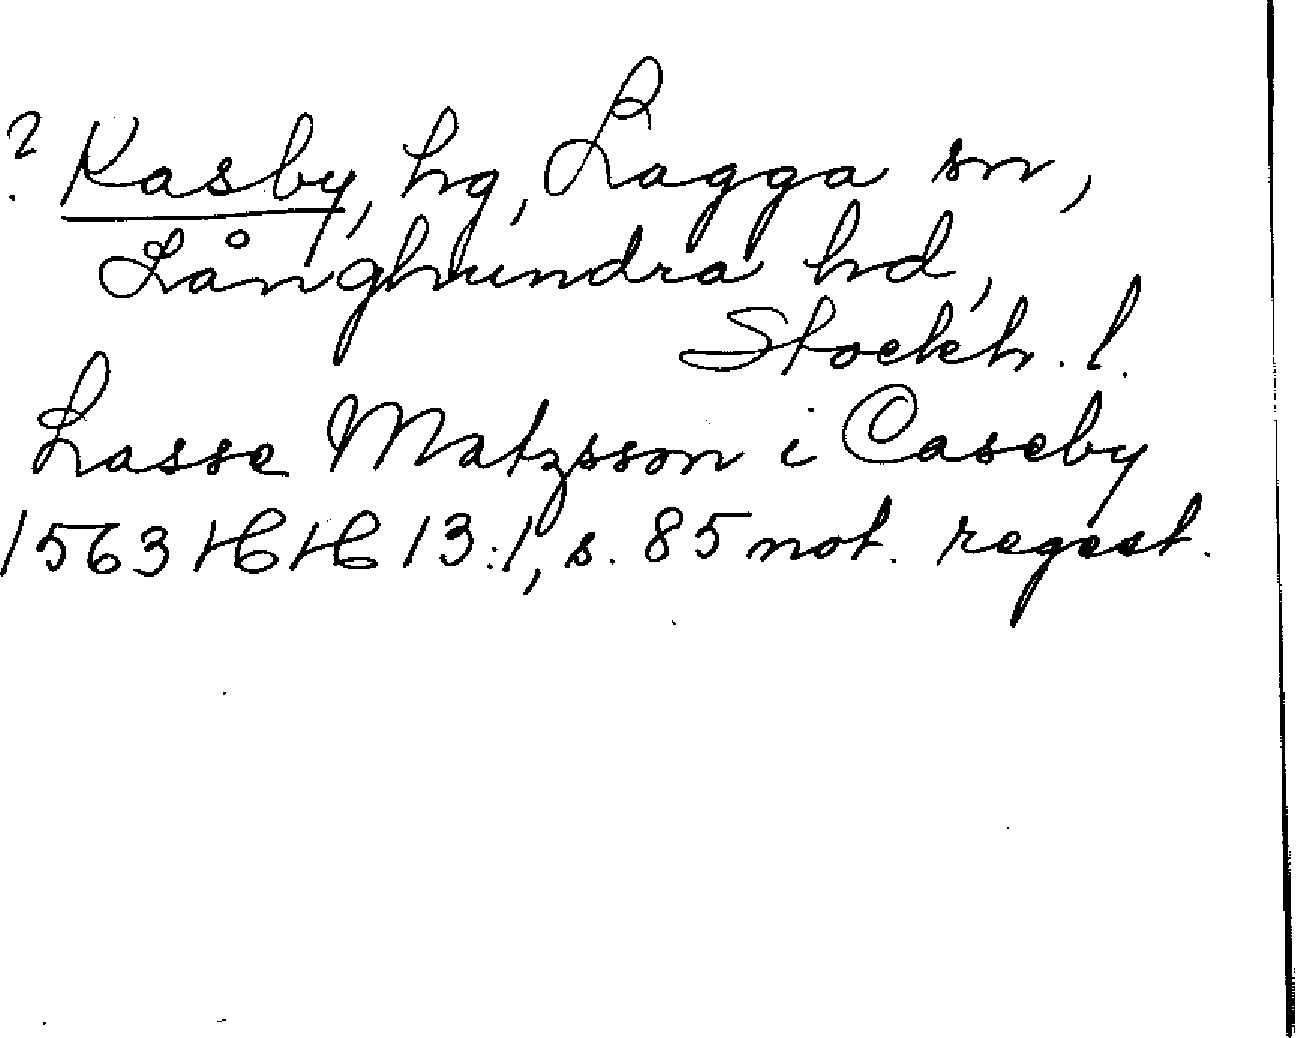 ? Kasby, hg, Lagga sn,
Långhundra hd,
Stockh. l.
Lasse Matzsson i Caseby
1563 HH 13:1, s. 85 not. regest.